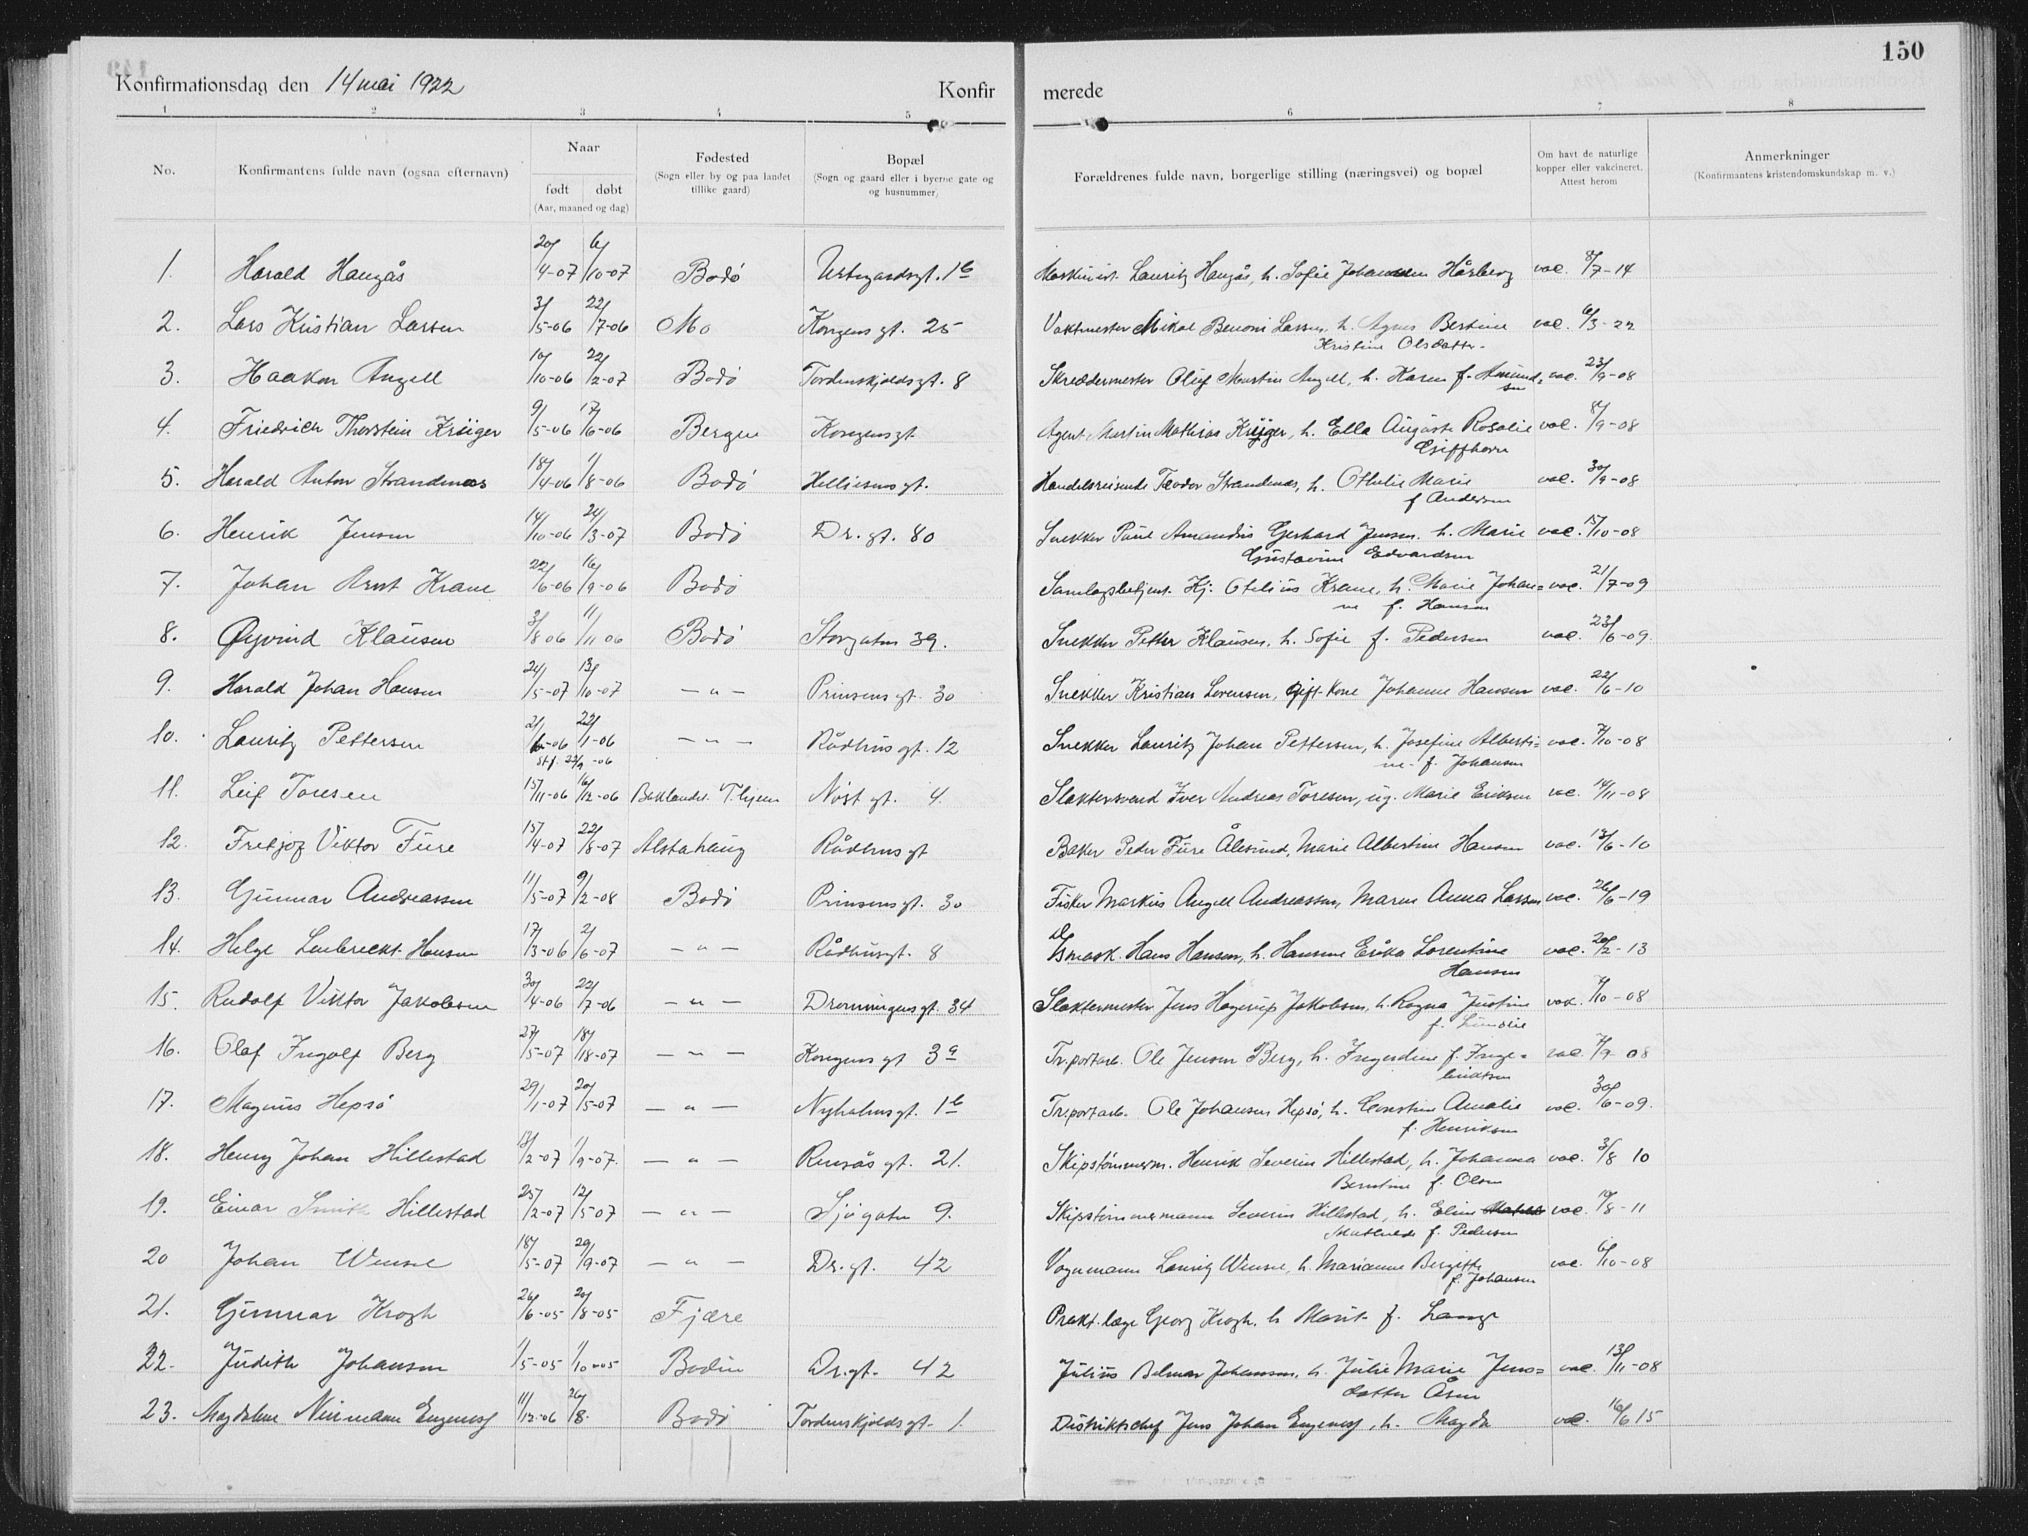 150
Konfirmationsdag den 14 mai 1922 Konfir merede
1 2 3 4 5 6 7 8
No. Konfirmantens fulde navn (ogsaa efternavn) Naar født døbt (Aar, maaned og dag) Fødested (Sogn eller by og paa landet tillike gaard) Bopæl (Sogn og gaard eller i byerne gate og og husnummer) Forældrenes fulde navn, borgerlige stilling (næringsvei) og bopæl Om havt de naturlige kopper eller vakcineret. Attest herom Anmerkninger (Konfirmantens kristendomskundskap m. v.)
1. Harald Haugås 20/4-07 6/10-07 Bodø Urtegardsgt. 1b Maskinist. Lauritz Haugås, h. Sofie Johansen Hårberg vac. 8/7-14
2. Lars Kristian Larsen 3/5-06 22/7-06 Mo Kongens gt. 25 Vaktmester Mikal Benoni Larsen, h. Agnes Bertine vac. 6/3-22
Kristine Olsdatter
3. Haakon Angell 10/10-06 22/2-07 Bodø Tordenskjoldsgt. 8 Skreddermester Oluf Martin Angell, h. Karen f. Amund= vac. 23/9-08
sen
4. Friedrich Thorstein Krüger 9/5-06 17/6-06 Bergen Kongensgt. Agent Martin Mathias Krüger, h. Ella Augusta Rosalie vac. 8/9-08
5. Harald Anton Strandenæs 18/4-06 1/8-06 Bodø Hellesensgt. Handelsreisende Teodor Strandenæs, h. Othelie Marie vac. 30/9-08
f. Andersen
6. Henrik Jensen 14/10-06 24/3-07 Bodø Dr. gt. 80 Snekker Paul Amandus Gerhard Jensen, h. Marie vac. 15/10-08
Gustavine Edvardsen
7. Johan Arnt Krane 22/6-06 16/9-06 Bodø Samlagsbetjent Hj. Otelius Krane, h. Marie Johan= vac. 21/7-09
ne f. Hansen
8. Øyvind Klausen 3/8 06 11/11 06 Bodø Storgaten 39. Snekker Petter Klausen, h. Sofie f. Pedersen vac. 23/6-09.
9. Harald Johan Hansen 24/5-07 13/10-07 — " — Prinsensgt. 30 Snekker Kristian Lorensen, Gift Kone Johanne Hansen vac. 22/6-10
10. Lauritz Pettersen 21/6-06 22/1-06 — " — Rådhusgt. 12 Snekker Lauritz Johan Pettersen, h. Josefine Alberti= vac. 7/10-08
st. f. 22/9-06 ne f. Johansen
11. Leif Toresen 15/11-06 16/12-06 Baklandet T.hjem Nørt gt. 4. Slaktersvend Iver Andreas Toresen, ug. Marie Eriksen vac. 14/11-08
12. Fritjof Viktor Fure 15/4-07 22/8-07 Alstahaug Rådhusgt Baker Peder Fure Ålesund, Marie Albertine Hansen vac. 13/6-10
13. Gunnar Andreassen 11/5-07 9/2-08 Bodø Prinsensgt. 30 Fisker Markus Angell Andreassen, Maren Anna Larsen vac. 26/6-19
14. Helge Hansen 17/3-06 2/6-07 — " — Rådhusgt. 8 Hans Hansen, h. Hansine Erika Lorentine vac. 20/2-13
Hansen
15. Rudolf Viktor Jakobsen 30/4-06 22/7-06 — " — Dronningensgt. 34 Slaktermester Jens Hagerup Jakobsen, h. Ragna Justine vac. 7/10-08
16. Olaf Ingolf Berg 27/5-07 18/18-07 — " — Kongens gt 3a Tr.portarb. Ole Jensen Berg, h. Ingerdine f. Inge= vac. 7/9 08
briktsen
17. Magnus Hepsø 29/1-07 20/5-07 — " — Nyholmsgt. 1b Tr.portarb. Ole Johansen Hepsø, h. Amalie vac. 30/6-09.
f. Henriksen
18. Henry Johan Hillestad 13/2-07 1/9-07. — " — Rensås gt. 21. Skipstømmerm. Henrik Severin Hillestad, h. Johanna vac. 3/8 10
Berntine f. Olsen
19. Einar Smith Hillestad 25/2-07 12/5 07 — " — Sjøgaten 9. Skipstømmermann Severin Hillestad, h. Eline vac. 19/8-11
Mathilde f. Pedersen
20 Johan Wensel 18/5-07 29/9-07 — " — Dr. gt. 42 Vognmann Lauritz Wensel, h. Marianne Birgitte vac. 6/10-08
f. Johansen
21. Gunnar Krogh 26/6-05 20/8-05 Fjære Prakt. læge Georg Krogh. h Marit f. Lange
22. Judith Johansen 1/5-05 1/10-05 Bodin Dr.gt. 42 Julius Johansen, h. Julie Marie Jens= vac. 13/11-08
datter Åsen
23. Magdalene Neumann Engenes 11/12-06 26/8. Bodø Tordenskjoldsgt. 1. Distriktschef Jens Johan Engenes, h. Magda vac. 16/6 15